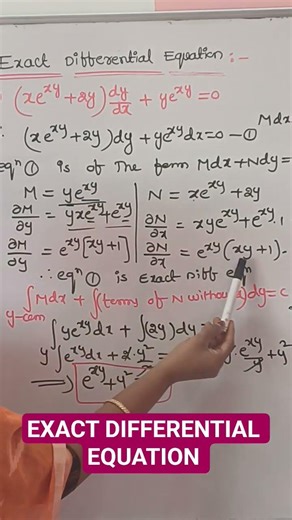 Exact Differential Equation :-
(xe^xy+2y) dy/dx + ye^xy=0
∴ (xe^xy+2y)dy+ye^xydx=0 -① Mdx
eqⁿ① is of The form Mdx+Ndy=
M = ye^xy | N = xe^xy+2y
∂M/∂y = yxe^xy+e^xy | ∂N/∂x = xye^xy+e^xy.1
∂M/∂y = e^xy[xy+1] | ∂N/∂x = e^xy(xy+1).
∴ eqⁿ① is exact Diff eqn
∫Mdx + ∫(terms of N without x)dy=c
y-con
∫ye^xydx + ∫(2y)dy=
y∫e^xydx + 2.y²/2 = y.e^xy/y+y²
⟹ e^xy+y²=
EXACT DIFFERENTIAL
EQUATION